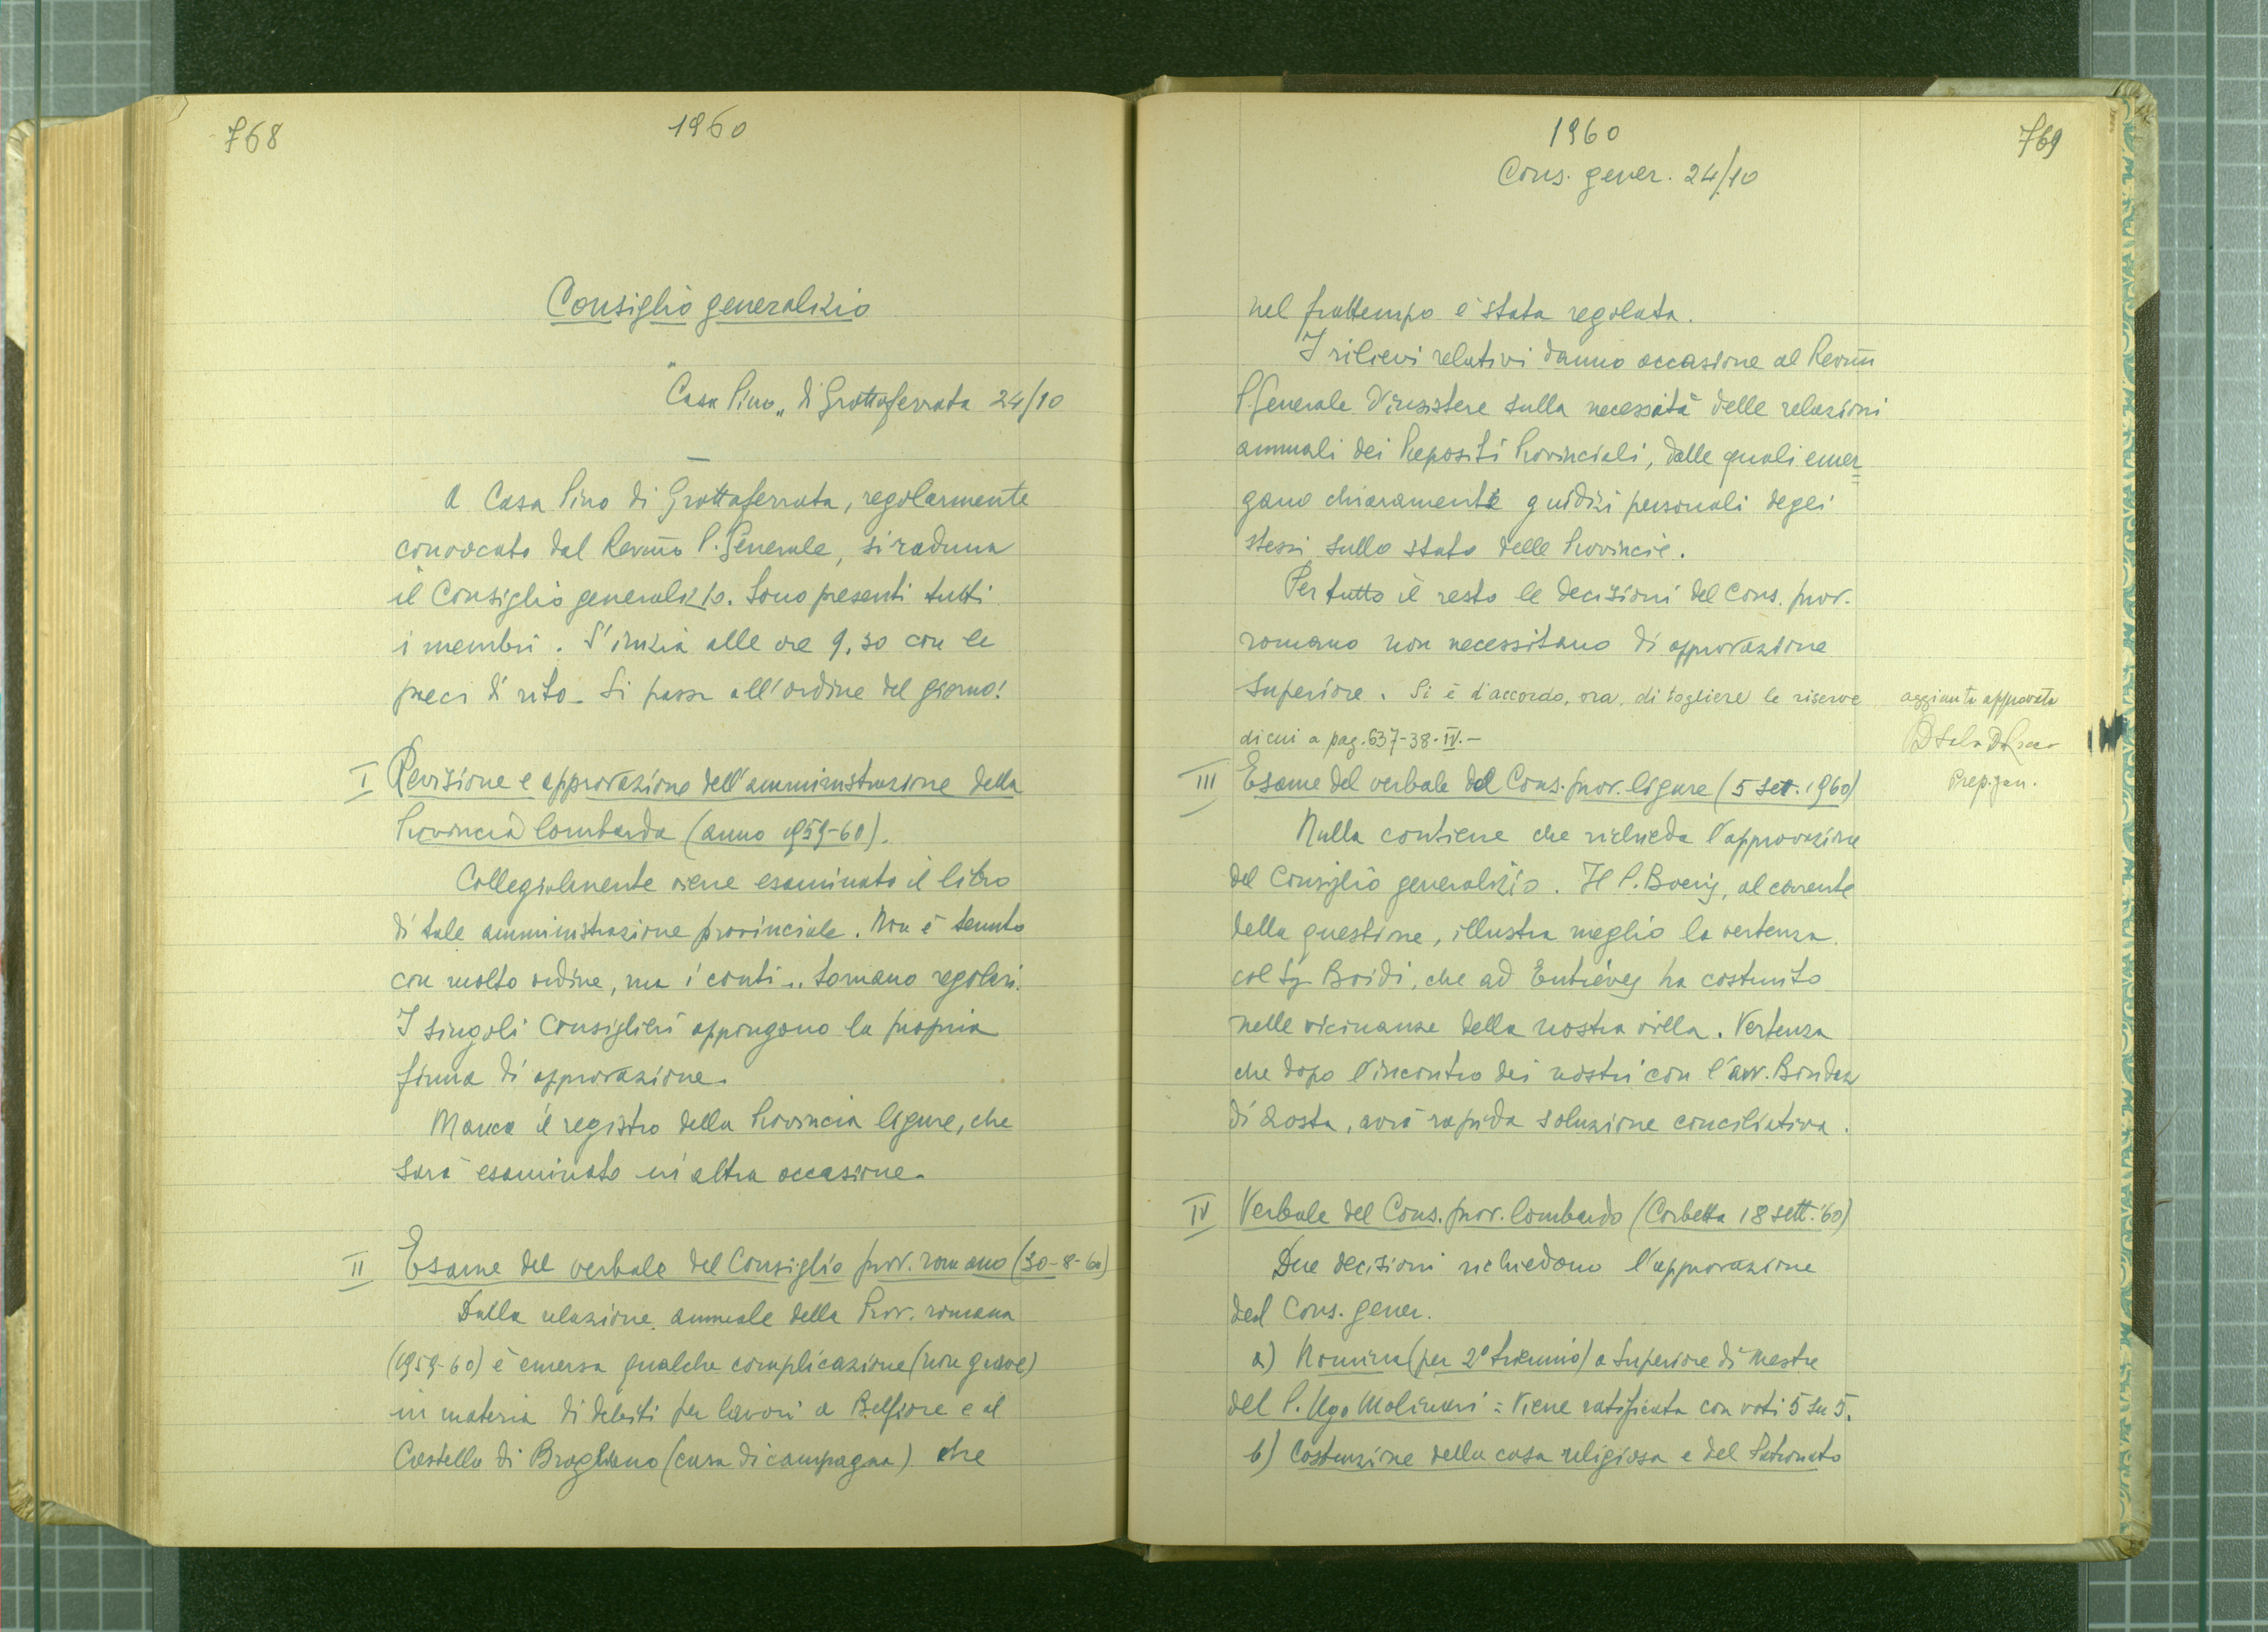 768
1960
Consiglio generalizio
"Casa Pino„ di Grottaferrata 24/10
A Casa Pino di Grottaferrata, regolarmente
convocato dal Revmo P. Generale, si raduna
il Consiglio generalizio. Sono presenti tutti
i membri. S'inizia alle ore 9,30 con le
preci di rito. Si passa all'ordine del giorno:
I Revisione e approvazione dell'amministrazione della
Provincia lombarda (anno 1959-60).
Collegialmente viene esaminato il libro
di tale amministrazione provinciale. Non è tenuto
con molto ordine, ma i conti... tornano regolari.
I singoli Consiglieri appongono la propria
firma di approvazione.
Manca il registro della Provincia ligure, che
sarà esaminato in altra occasione.
II Esame del verbale del Consiglio prov. romano (30-8-60)
Dalla relazione annuale della Prov. romana
(1959-60) è emersa qualche complicazione (non grave)
in materia di debiti per lavori a Belfiore e al
Castello di Brogliano (casa di campagna) che
1960
769
Cons. gener. 24/10
nel frattempo è stata regolata.
I rilievi relativi danno occasione al Revmo
P. Generale d'insistere sulla necessità delle relazioni
annuali dei Prepositi Provinciali, dalle quali emer=
gano chiaramente giudizi personali degli
stessi sullo stato delle Provincie.
Per tutto il resto le decisioni del Cons. prov.
romano non necessitano di approvazione
superiore. Si è d'accordo, ora, di togliere le riserve
di cui a pag. 637-38-IV.-
aggiunta approvata
Prep. gen.
III Esame del verbale del Cons. prov. ligure (5 sett. 1960)
Nulla contiene che richieda l'approvazione
del Consiglio generalizio. Il P. Boeris, al corrente
della questione, illustra meglio la vertenza
col Sig. Boidi, che ad Entrèves ha costruito
nelle vicinanze della nostra villa. Vertenza
che dopo l'incontro dei nostri con l'avv. Bondaz
di Aosta, avrà rapida soluzione conciliativa.
IV Verbale del Cons. prov. lombardo (Corbetta 18 sett. '60)
Due decisioni richiedono l'approvazione
del Cons. gener.
a) Nomina (per 2° triennio) a Superiore di Mestre
del P. Ugo Molinari = Viene ratificata con voti 5 su 5.
b) Costruzione della casa religiosa e del Patronato